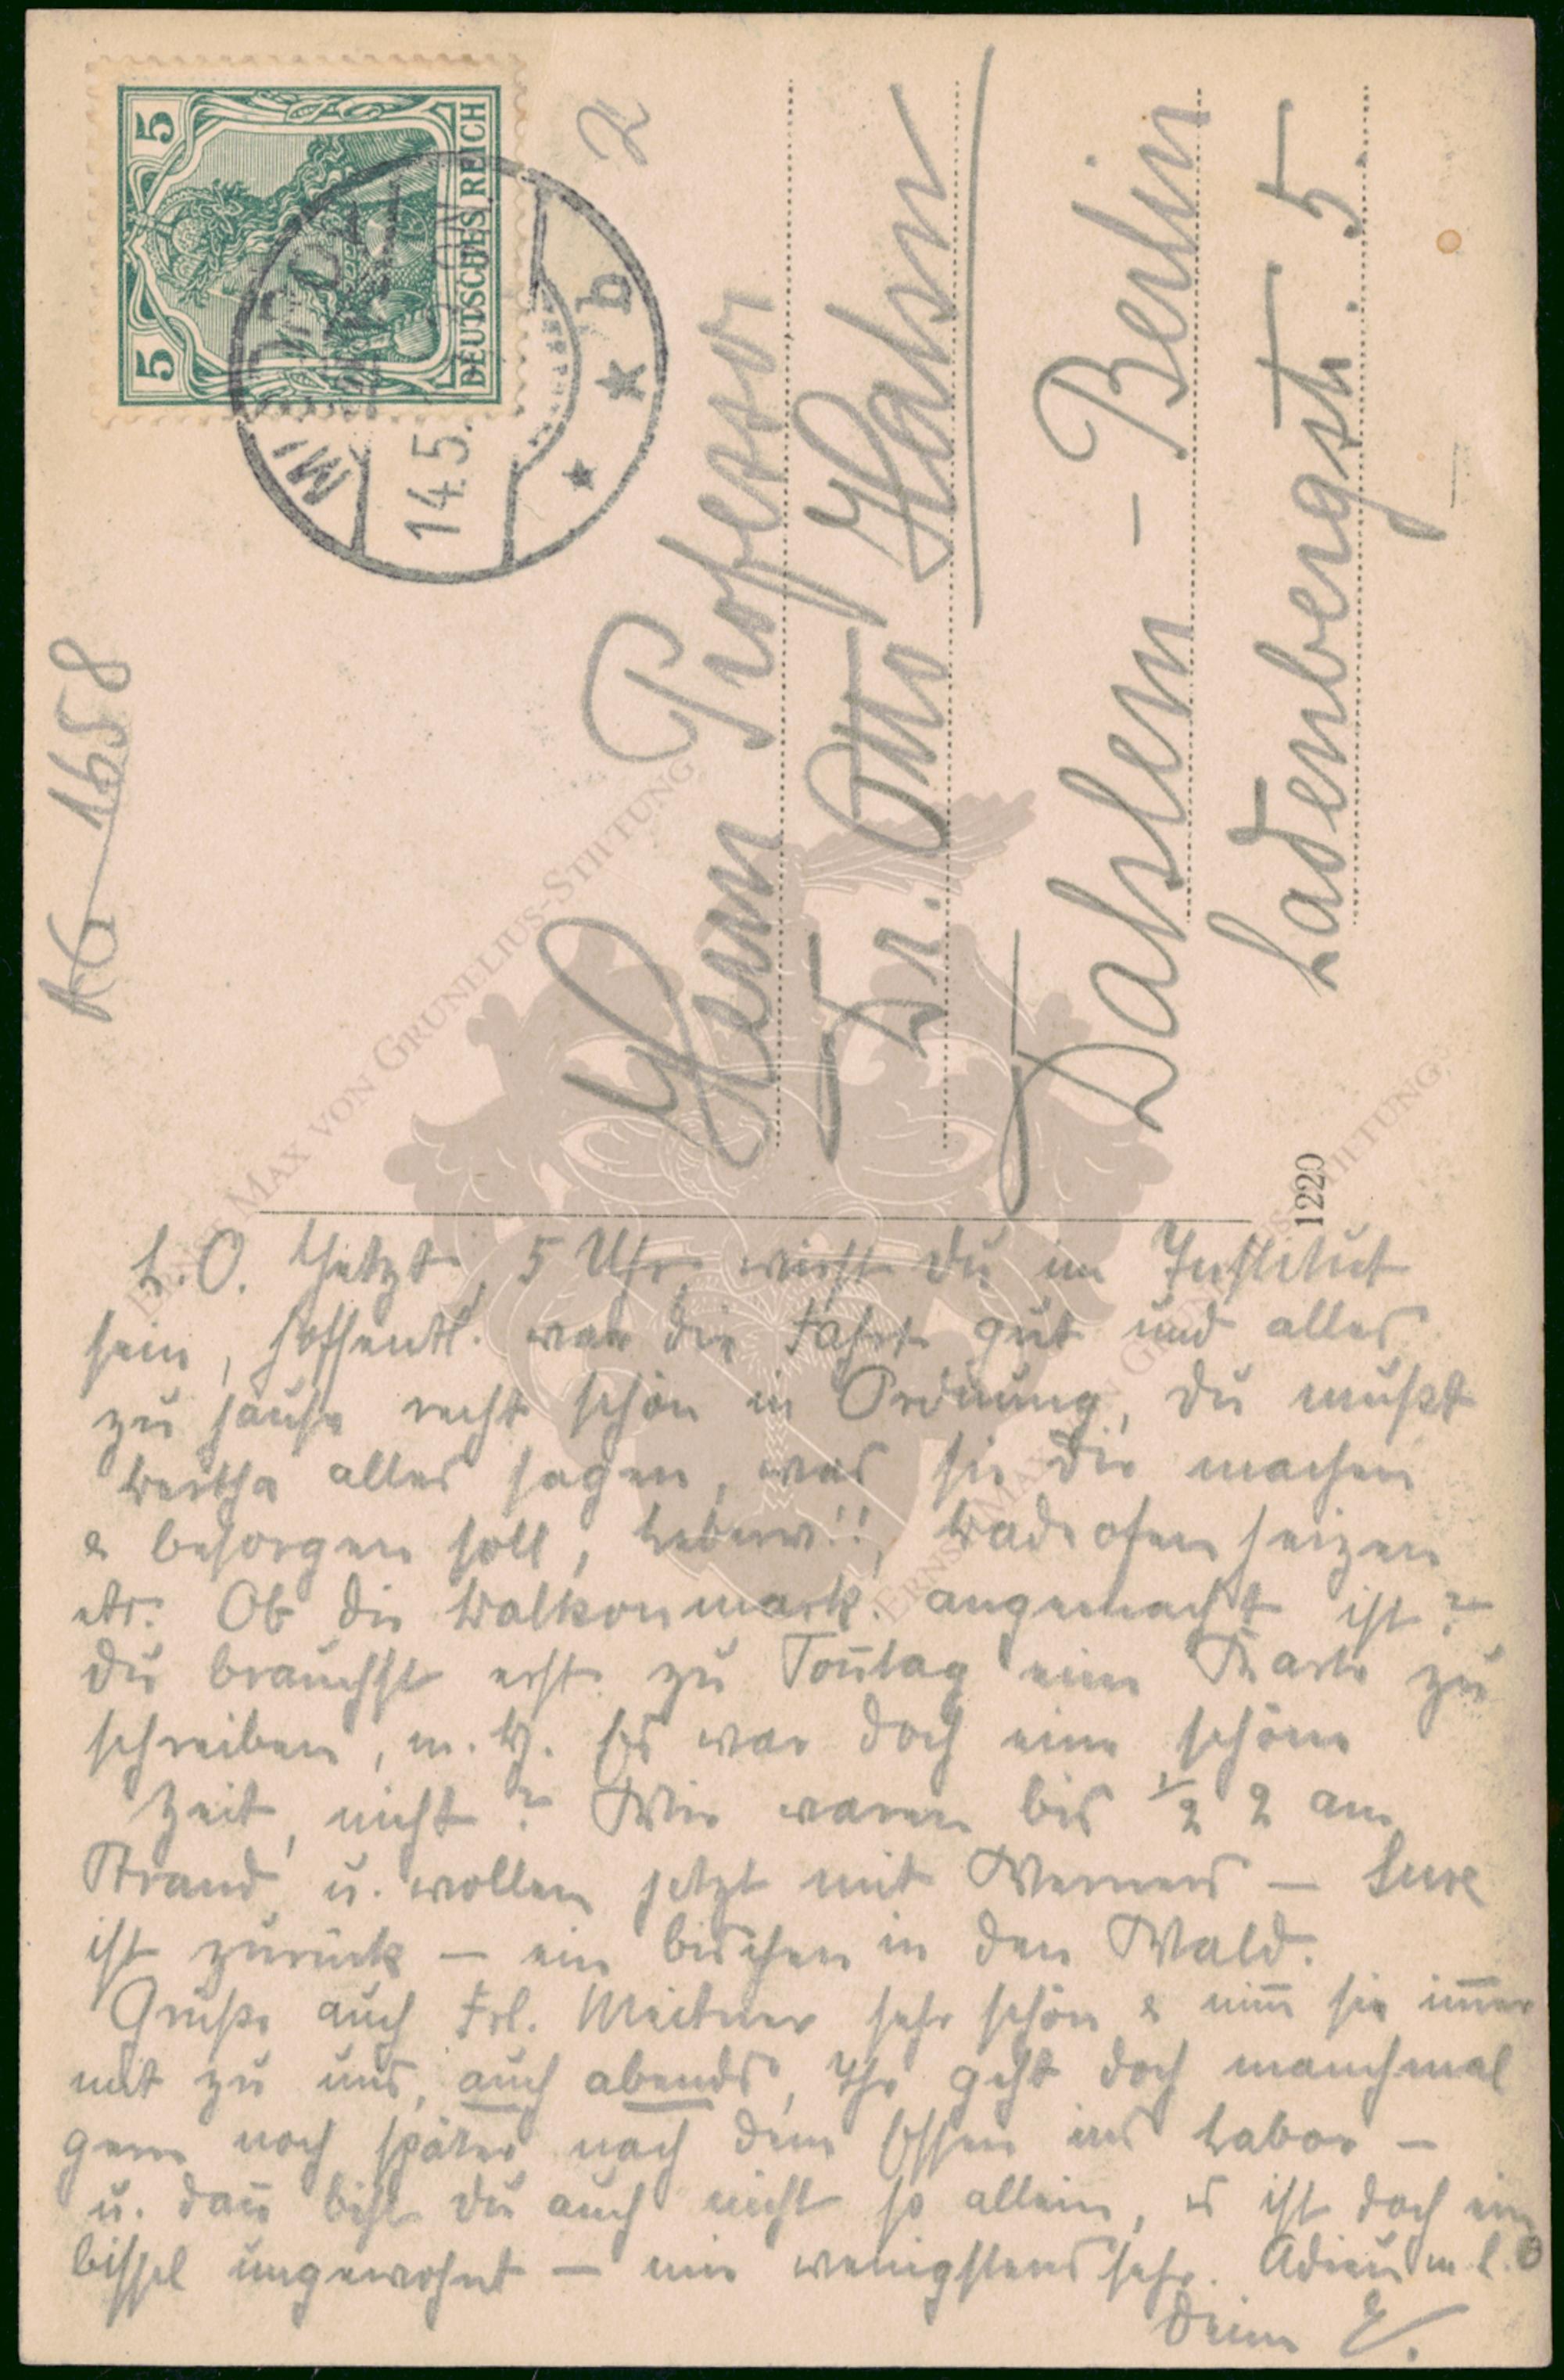 5
5
DEUTSCHES REICH
MI
14.5.
* b *
KG 1658
Herrn Professor
Dr. Otto Hahn
Dahlem - Berlin
Ladenbergstr. 5.
1220
L. O. Jetzt, 5 Uhr wirst Du im Institut
sein, hoffentl. war die Fahrt gut und alles
zu hause recht schön in Ordnung, Du mußt
Bertha alles sagen, was sie Dir machen
& besorgen soll, Badeofen heizen
etc. Ob die Balkonmark. angemacht ist?
Du brauchst erst zu Sonntag eine Karte zu
schreiben, m. H. Es war doch eine schöne
Zeit, nicht? Wir waren bis ½ 2 am
Strand u. wollen jetzt mit Werners —
ist zurück — ein bischen in den Wald.
Grüße auch Frl. Meitner sehr schön & nim̅ sie im̅er
mit zu uns, auch abends, Ihr geht doch manchmal
gern noch später nach dem Essen ins Labor —
u. dan̅ bist Du auch nicht so allein, es ist doch ein
bissel ungewohnt — mir wenigstens sehr. Adieu m. l. O
Deine E.
ERNST MAX VON GRUNELIUS-STIFTUNG
ERNST MAX VON GRUNELIUS-STIFTUNG